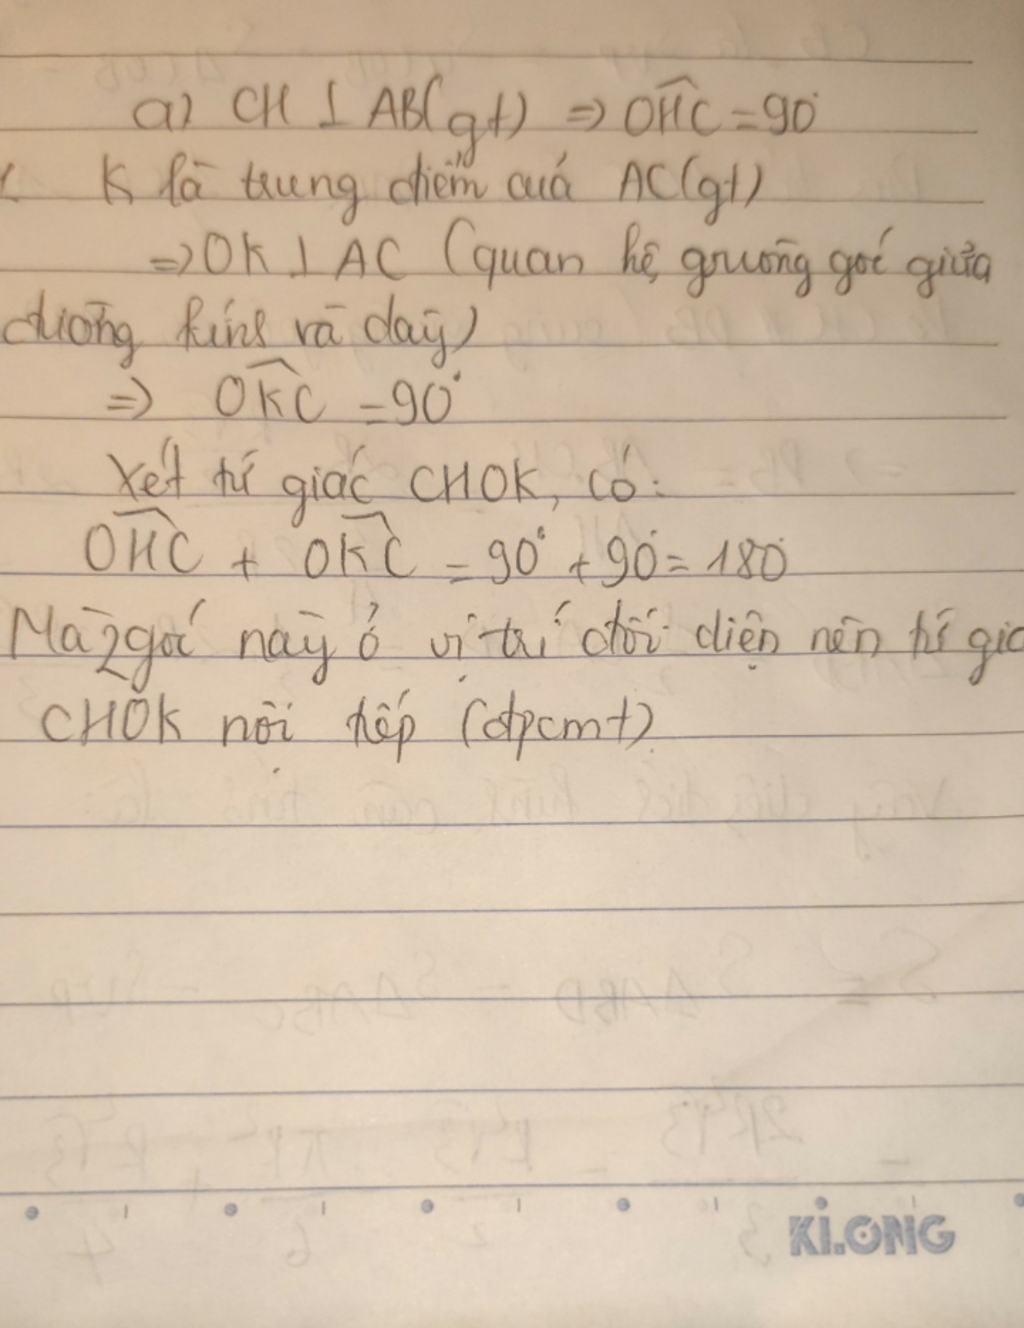 a) CH ⊥ AB(gt) ⇒ OHC = 90°
K là trung điểm của AC(gt)
⇒ OK ⊥ AC (quan hệ gruông goć giữa
đường kính và dây)
⇒ OKC = 90°
Xét tứ giác CHOK, có:
OHC + OKC = 90° + 90° = 180°
Mà 2 góc này ở vị trí đối diện nên tứ giác
CHOK nội tiếp (đpcmt)
KI.ONG